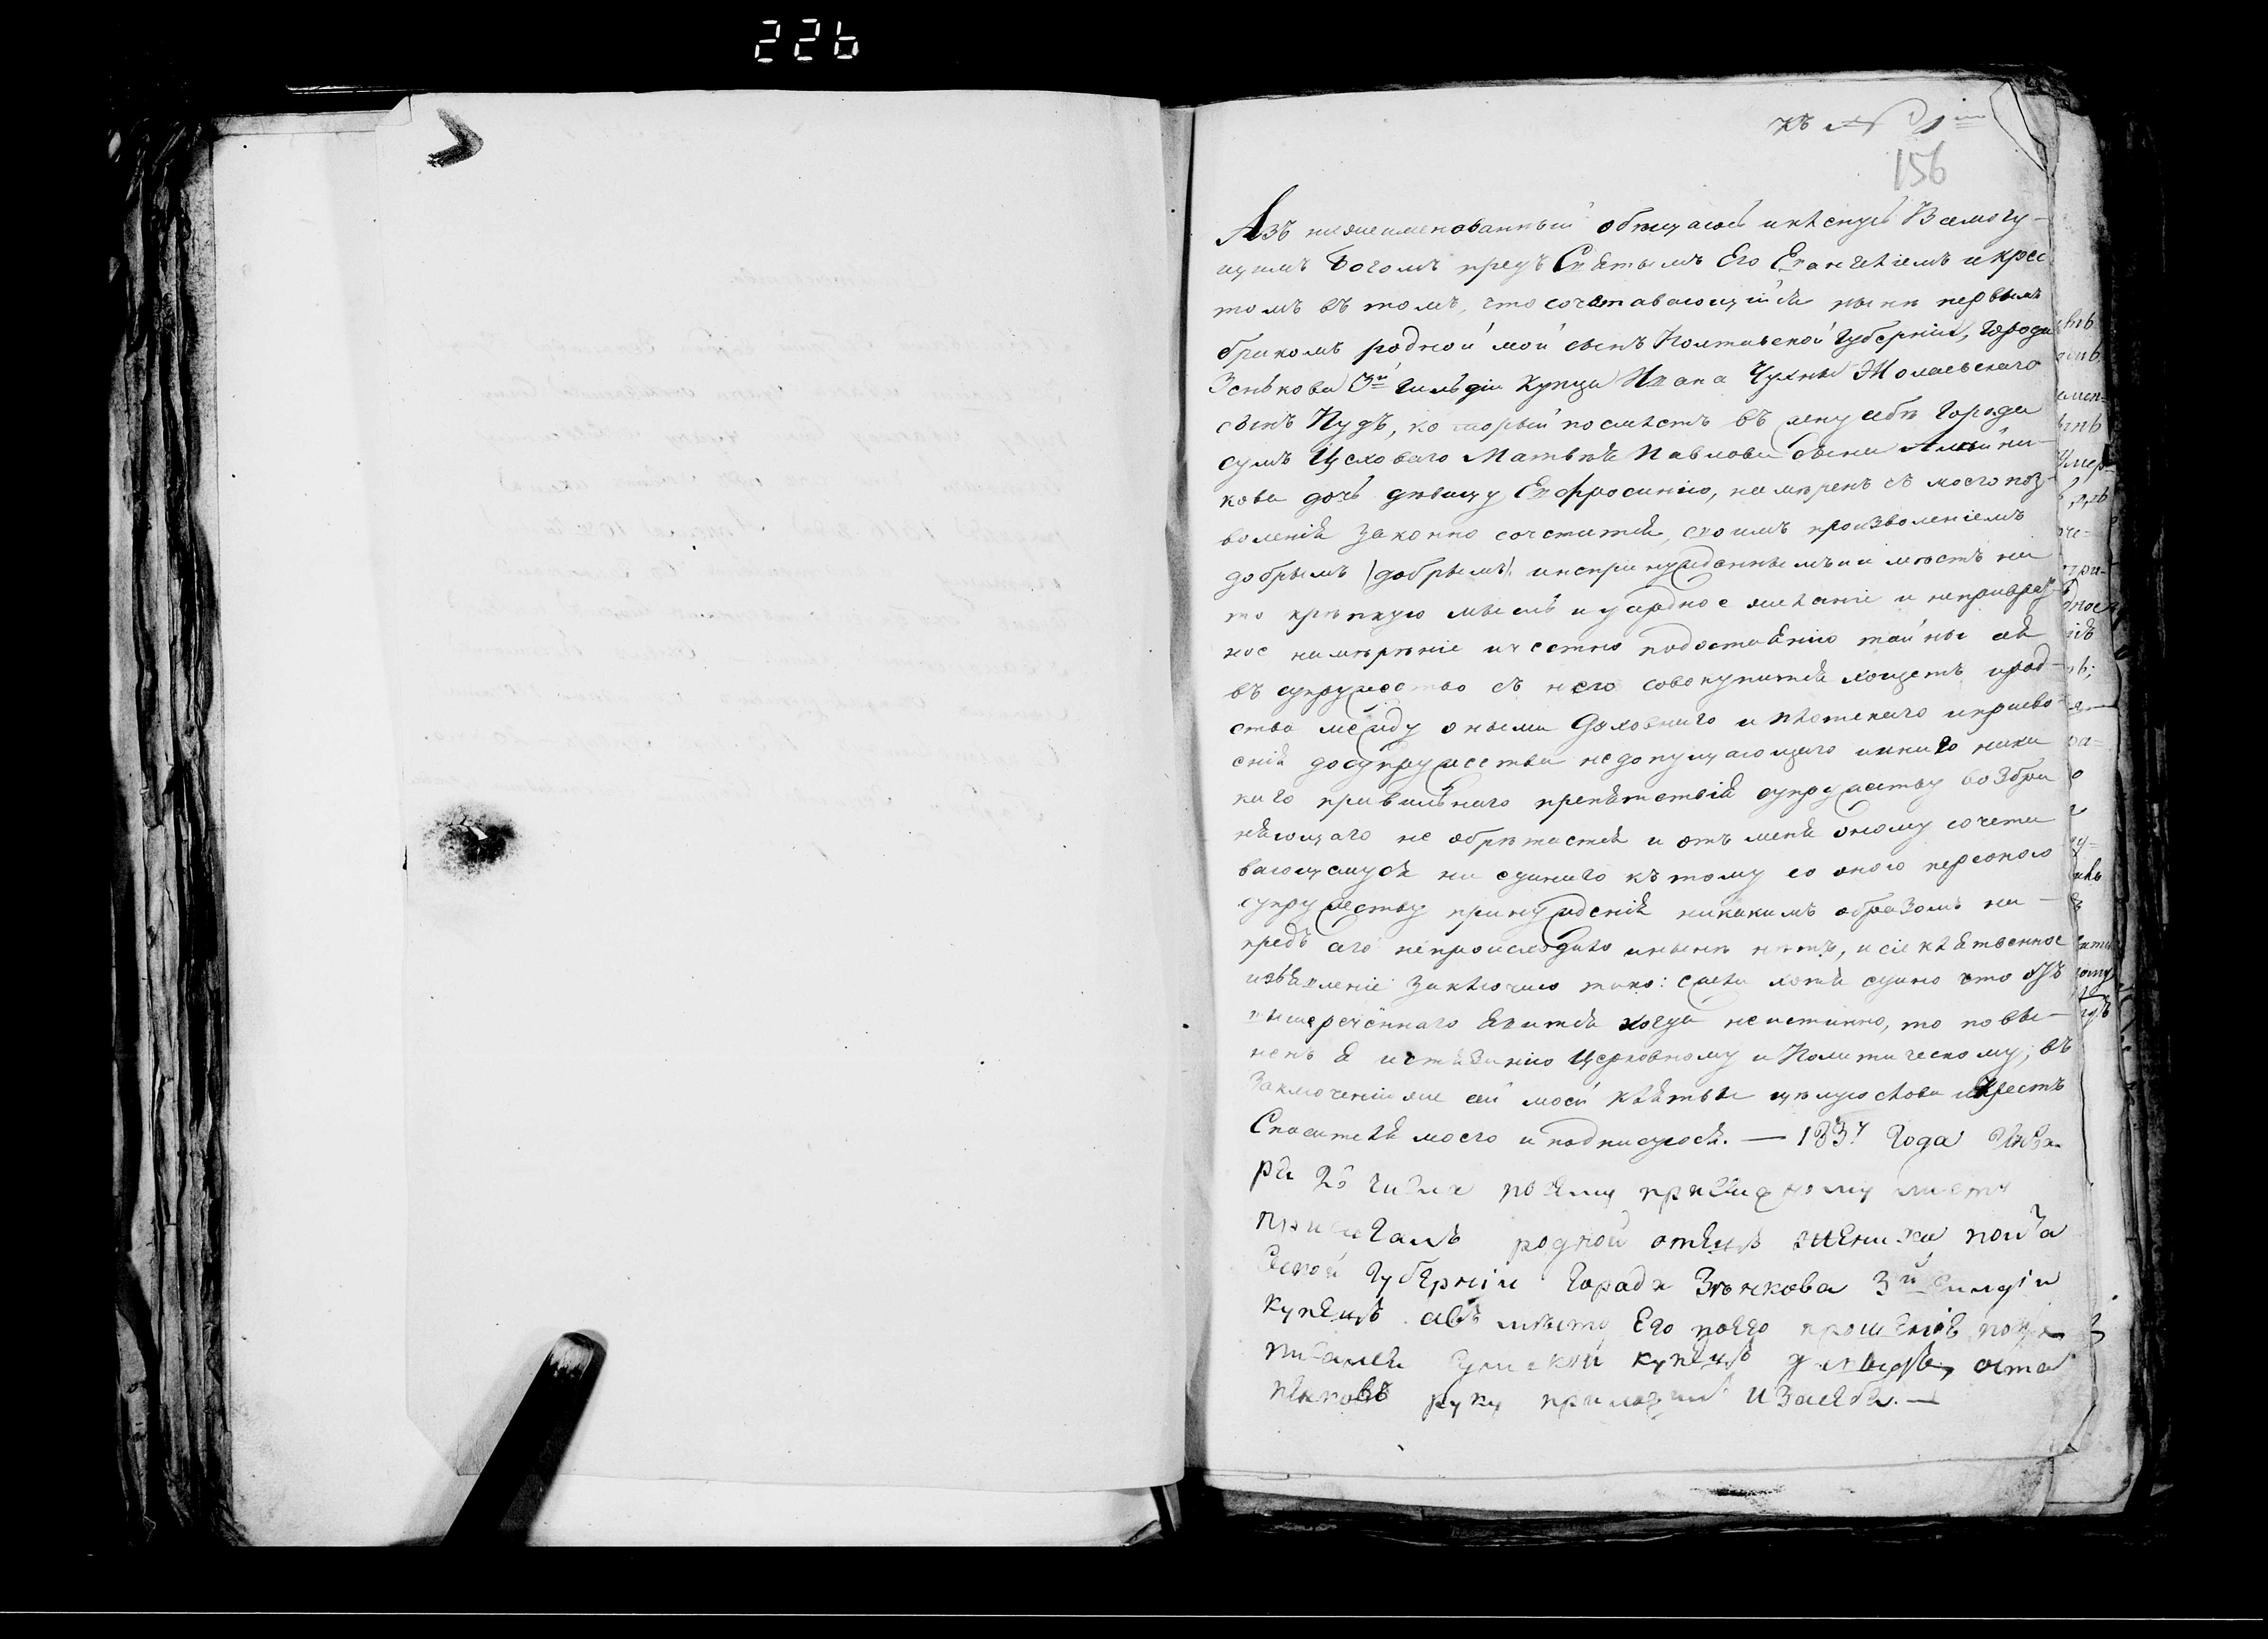 226
къ №
156
Азъ нижеименованный обѣщаюсь и клѣнусь Всемогу-
щимъ Богомъ предъ Святымъ Его Евангеліемъ и крес
томъ въ томъ, что сочетавающійся нынѣ первымъ
бракомъ родной мой сынъ Полтавской Губерніи, Города
Зенькова 3й Гильдіи Купца Ивана Чухны
сынъ Пудъ, который поемлетъ въ жену себѣ Города
Сумъ Цеховаго Матвѣя Павлова сына
кова дочь дѣвицу Евфросинію, намѣренъ съ моего поз-
воленія законно сочетатися, своимъ произволеніемъ
добрымъ (добрымъ) и непринужденнымъ и имѣетъ на
то крѣпкую мысль и усердное желаніе и непритвор
ное намѣреніе и честно по достоянію тайны сея
въ супружество съ нею совокупитися хощетъ и род-
ства между оными духовнаго и плотскаго и присво-
енія до супружества недопущающаго и инаго ника
каго правильнаго препятствія супружеству возбра
няющаго не обрѣтается и отъ меня оному сочета
вающемуся ни единаго къ тому со оною персоною
супружеству принужденія никакимъ образомъ на-
предъ сего непроисходило и нынѣ нѣтъ, и сіе клятвенное
изъявленіе заключаю тако: ежели хотя едино что отъ
вышереченнаго явится когда неистинно, то повы-
ненъ я истязанію Церковному и Политическому, въ
заключеніи же сей моей клятвы цѣлую слова и Крестъ
Спасителя моего и подписуюся. — 1837 Года Янва
ря 26 числа по сему присяжному листу
присягалъ родной отецъ жениха полта
вской Губерніи Города Зѣнкова 3й гилдіи
купецъ а въ мѣсто его по его прошенію подъ
писался сумской купецъ аста
пенковъ руку приложилъ и за себя. —